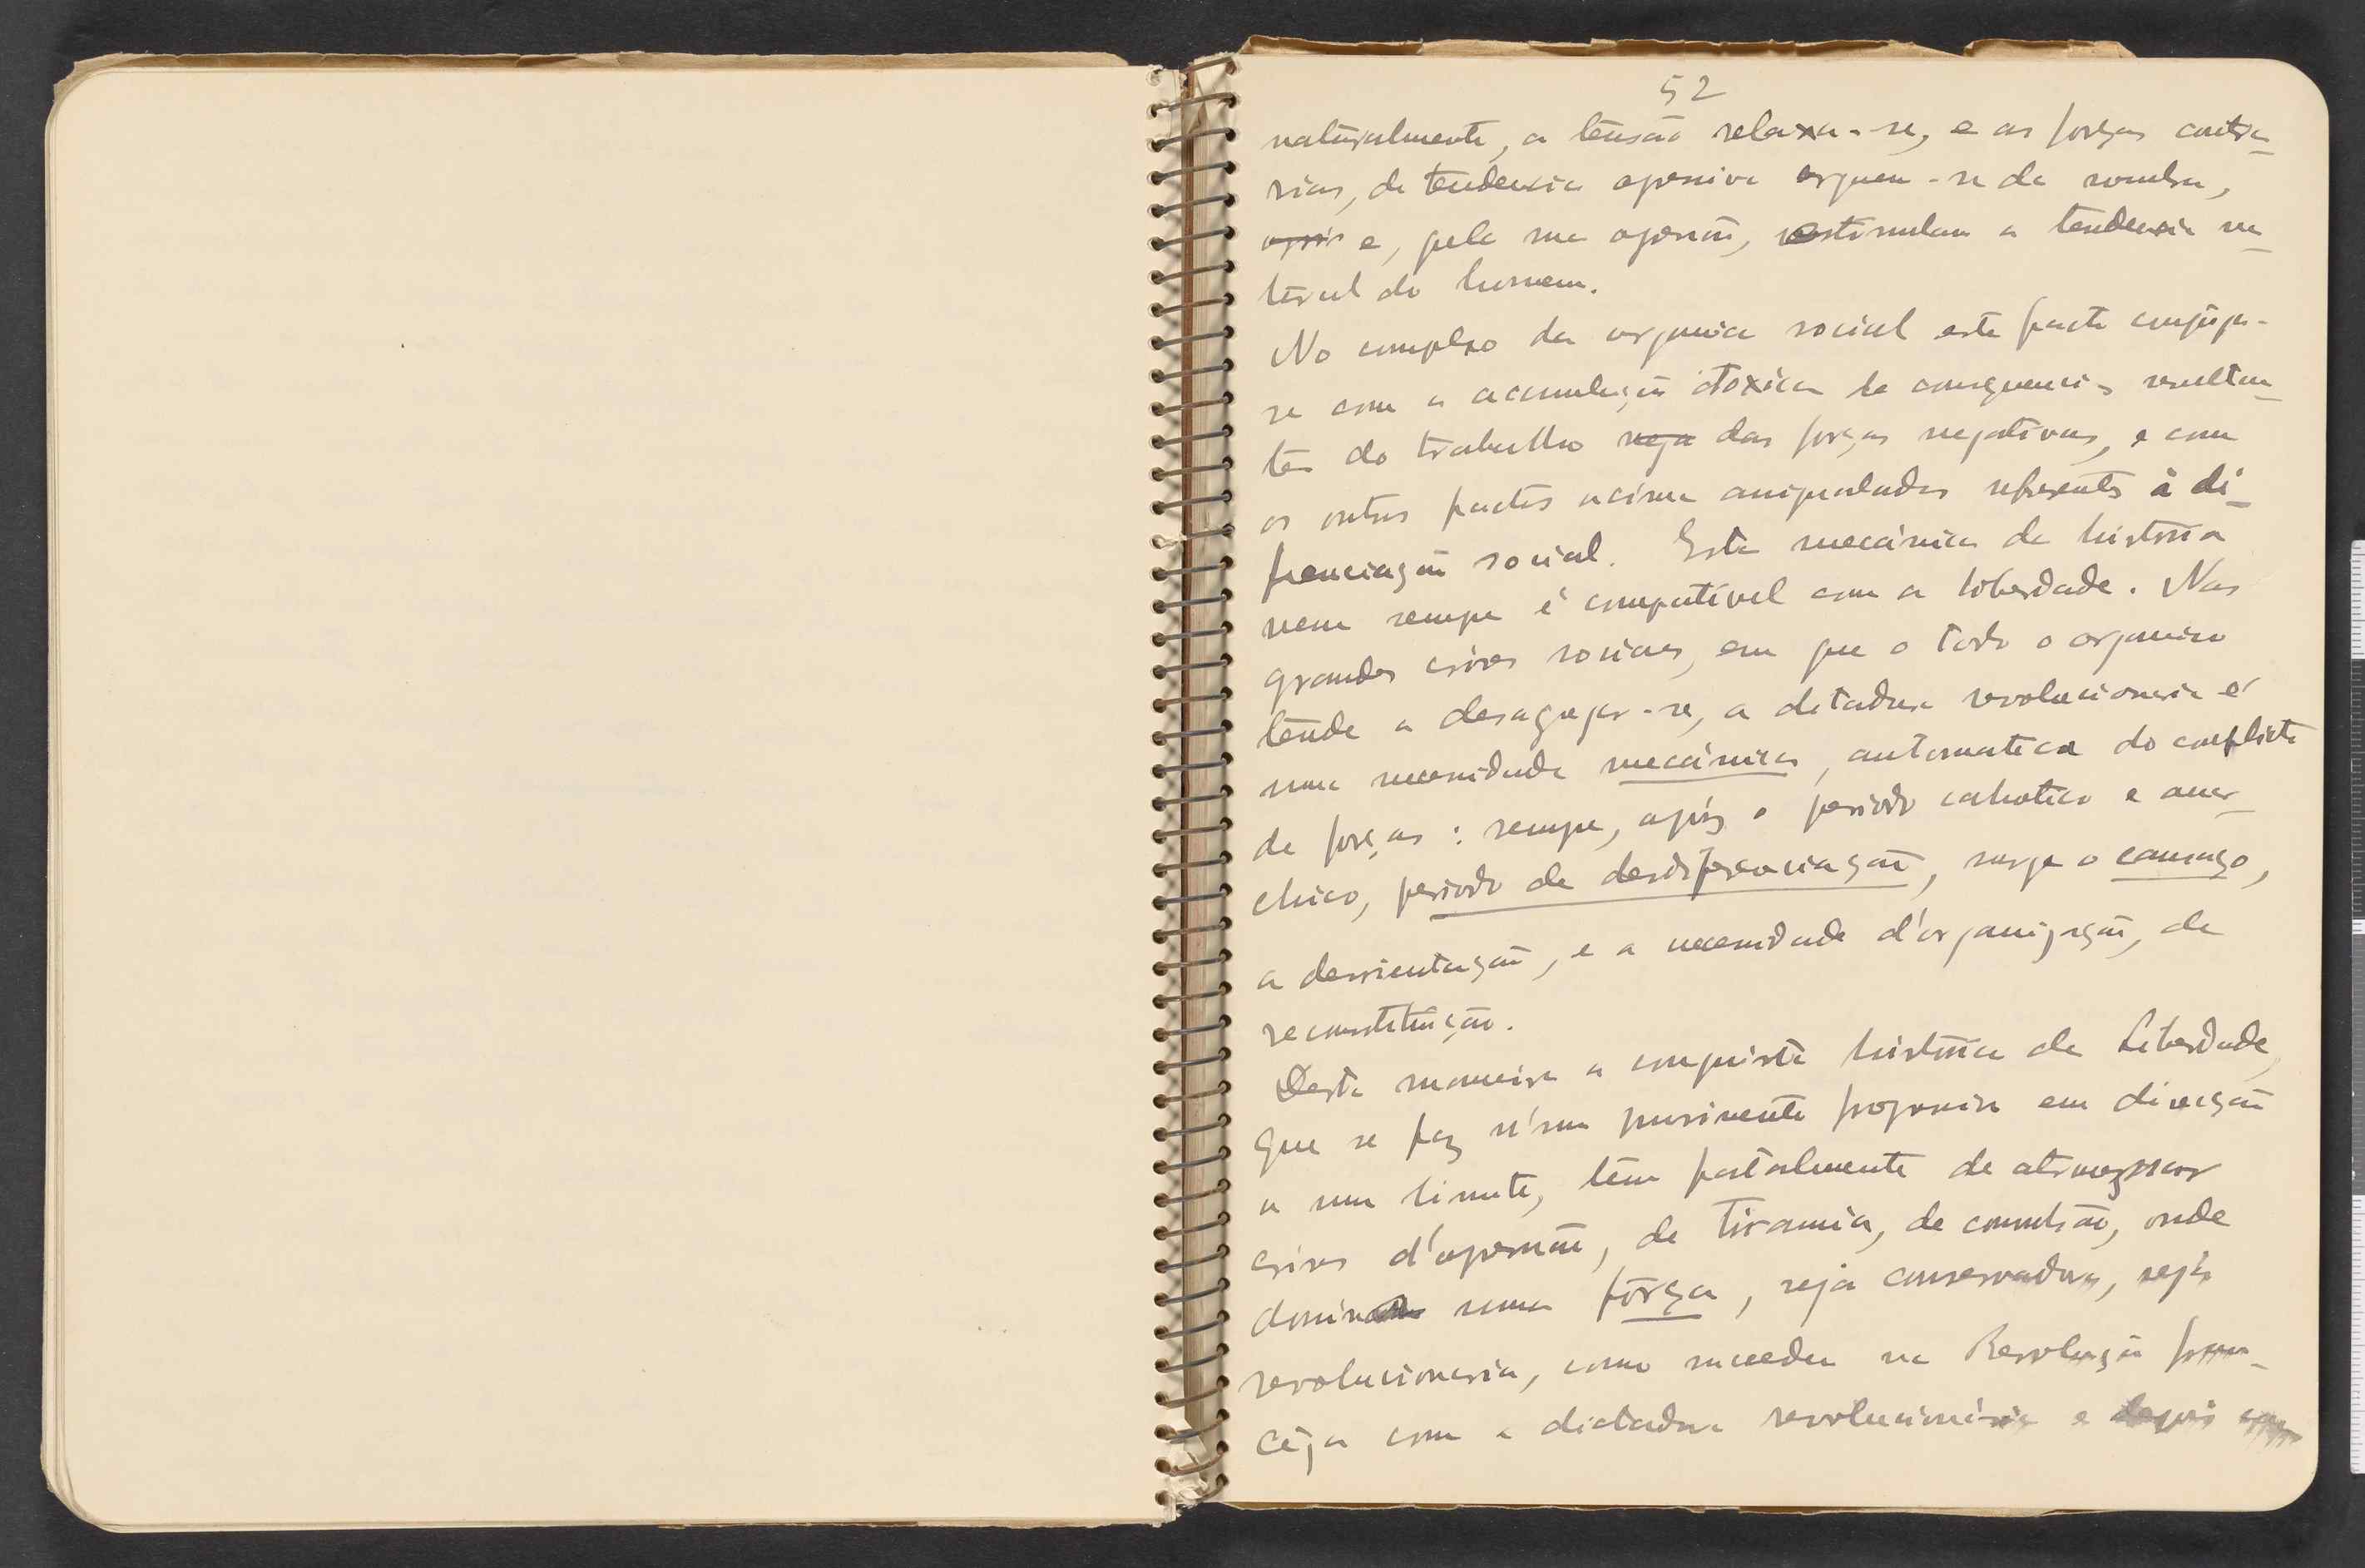 52
naturalmente, a tensão relaxa-se, e as forças contra-
rias, de tendencia opressiva erguem-se da sombra,
e, pela sua opressão, estimulam a tendencia na-
tural do homem.
No complexo da organica social este facto conjuga-
se com a acumulação toxica de consequencias resultan-
tes do trabalho das forças negativas, e com
os outros factos acima assignalados referentes á di-
ferenciação social. Esta mecánica da história
nem sempre é compativel com a liberdade. Nas
grandes crises sociaes, em que o todo o organico
tende a desagregar-se, a ditadura revolucionaria é
uma necessidade mecánica, automatica do conflicto
de forças: sempre, após o periodo cahotico e anar-
chico, periodo de desdiferenciação, surge o cansaço,
a desorientação, e a necessidade d'organização, de
reconstituição.
Desta maneira a conquista história da Liberdade,
que se faz n'um movimento progressivo em direcção
a um limite, tem fatalmente de atravessar
crises d'opressão, de tirania, de convulsão, onde
domina uma fôrça, seja conservadora, seja
revolucionaria, como sucedeu na Revolução fran-
cêza com a dictadura revolucionária e depois